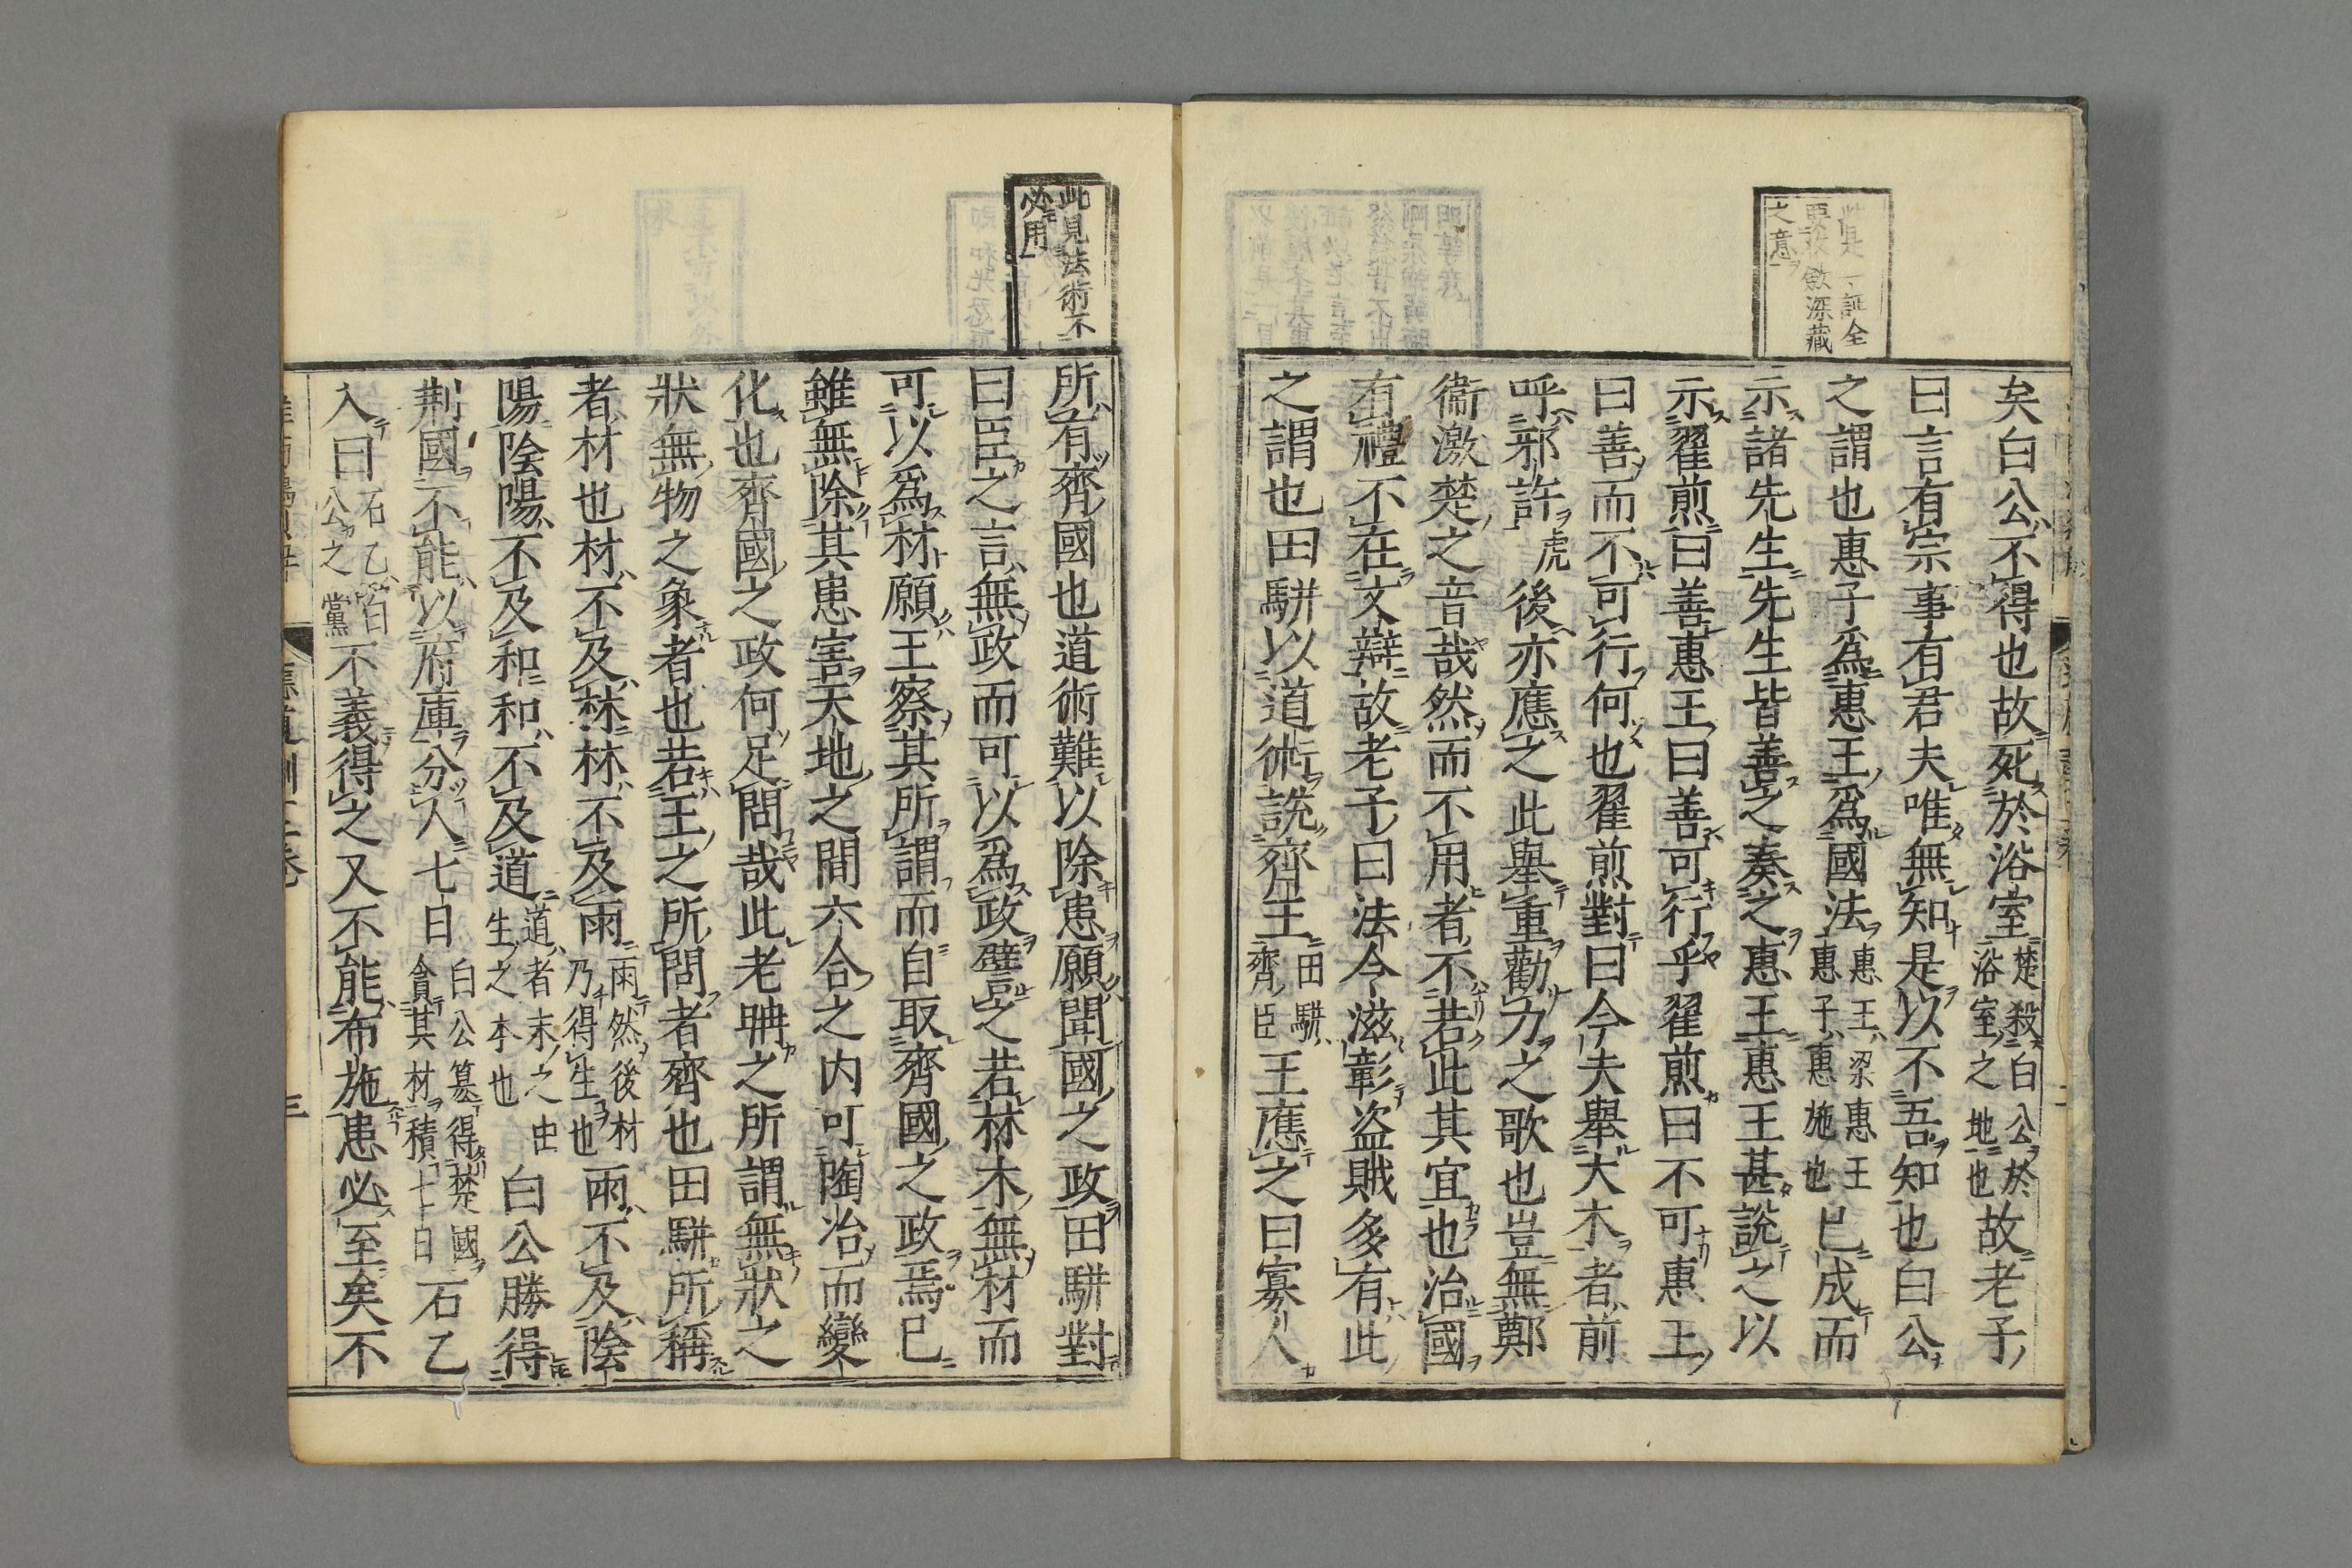 此是一証全
要收斂深藏
之意
矣白公不得也故死於浴室楚殺白公於浴室之地也故老子
曰言有宗事有君夫唯無知是以不吾知也白公
之謂也惠子爲惠王爲國法惠王梁惠王惠子惠施也已成而
示諸先生先生皆善之奏之惠王惠王甚說之以
示翟煎曰善惠王曰善可行乎翟煎曰不可惠王
曰善而不可行何也翟煎對曰今夫舉大木者前
呼邪許虎後亦應之此舉重勸力之歌也豈無鄭
衞激楚之音哉然而不用者不若此其宜也治國
有禮不在文辯故老子曰法令滋彰盜賊多有此
之謂也田駢以道術說齊王田駢齊臣王應之曰寡人
此見法術不
必用
所有齊國也道術難以除患願聞國之政田駢對
曰臣之言無政而可以爲政譬之若林木無材而
可以爲材願王察其所謂而自取齊國之政焉已
雖無除其患害天地之間六合之内可陶冶而變
化也齊國之政何足問哉此老聃之所謂無狀之
狀無物之象者也若王之所問者齊也田駢所稱
者材也材不及林林不及雨雨然後材乃得生也雨不及陰
陽陰陽不及和和不及道道者末之由生之本也白公勝得
荆國不能以府庫分人七日白公簒得楚國貪其材積七日石乙
入曰石乙白公之黨不義得之又不能布施患必至矣不
三